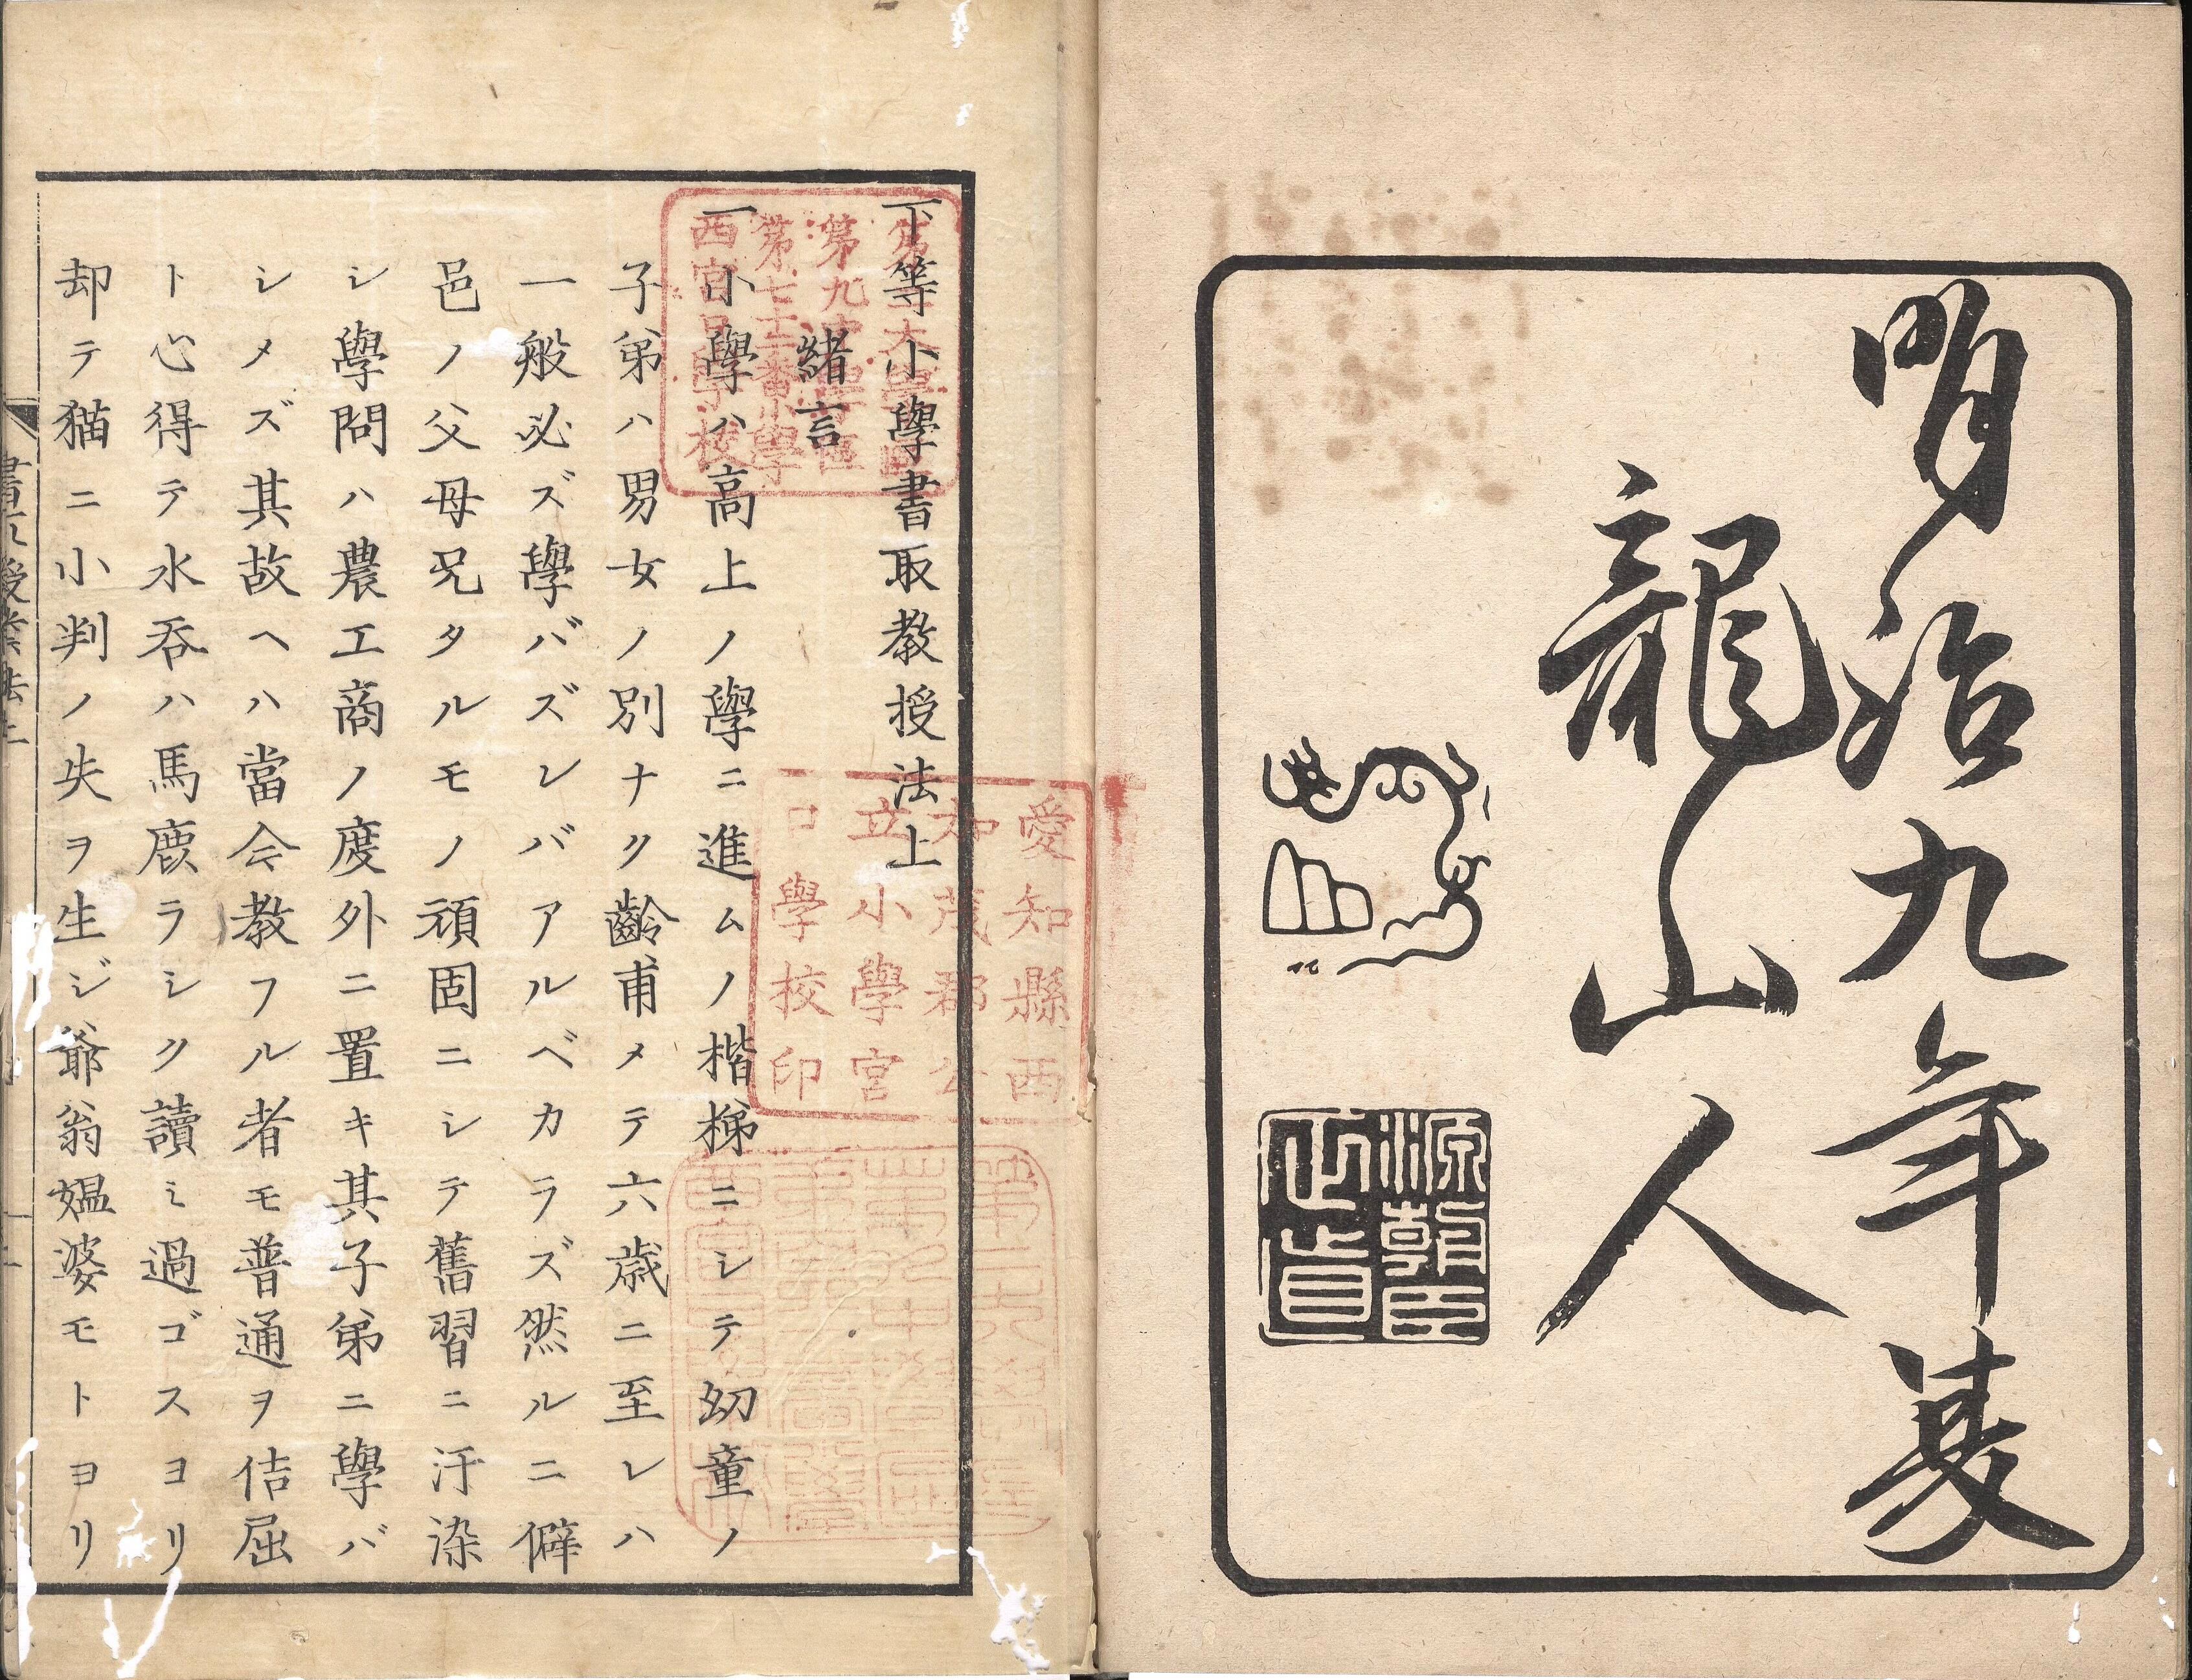 明治九年夏
龍山人
下等小學書取教授法上
緒言
一小學ハ高上ノ學ニ進ムノ楷梯ニシテ幼童ノ
子弟ハ男女ノ別ナク齡甫メテ六歳ニ至レハ
一般必ズ學バズレバアルベカラズ然ルニ僻
邑ノ父母兄タルモノ頑固ニシテ舊習ニ汙染
シ學問ハ農工商ノ度外ニ置キ其子弟ニ學バ
シメズ其故ヘハ當今教フル者モ普通ヲ佶屈
ト心得テ水呑ハ馬鹿ラシク讀ミ過ゴスヨリ
却テ猫ニ小判ノ失ヲ生ジ爺翁媼婆モトヨリ
愛知縣西
加茂郡公
立小學宮
口學校印
第九中學區
西宮口學校